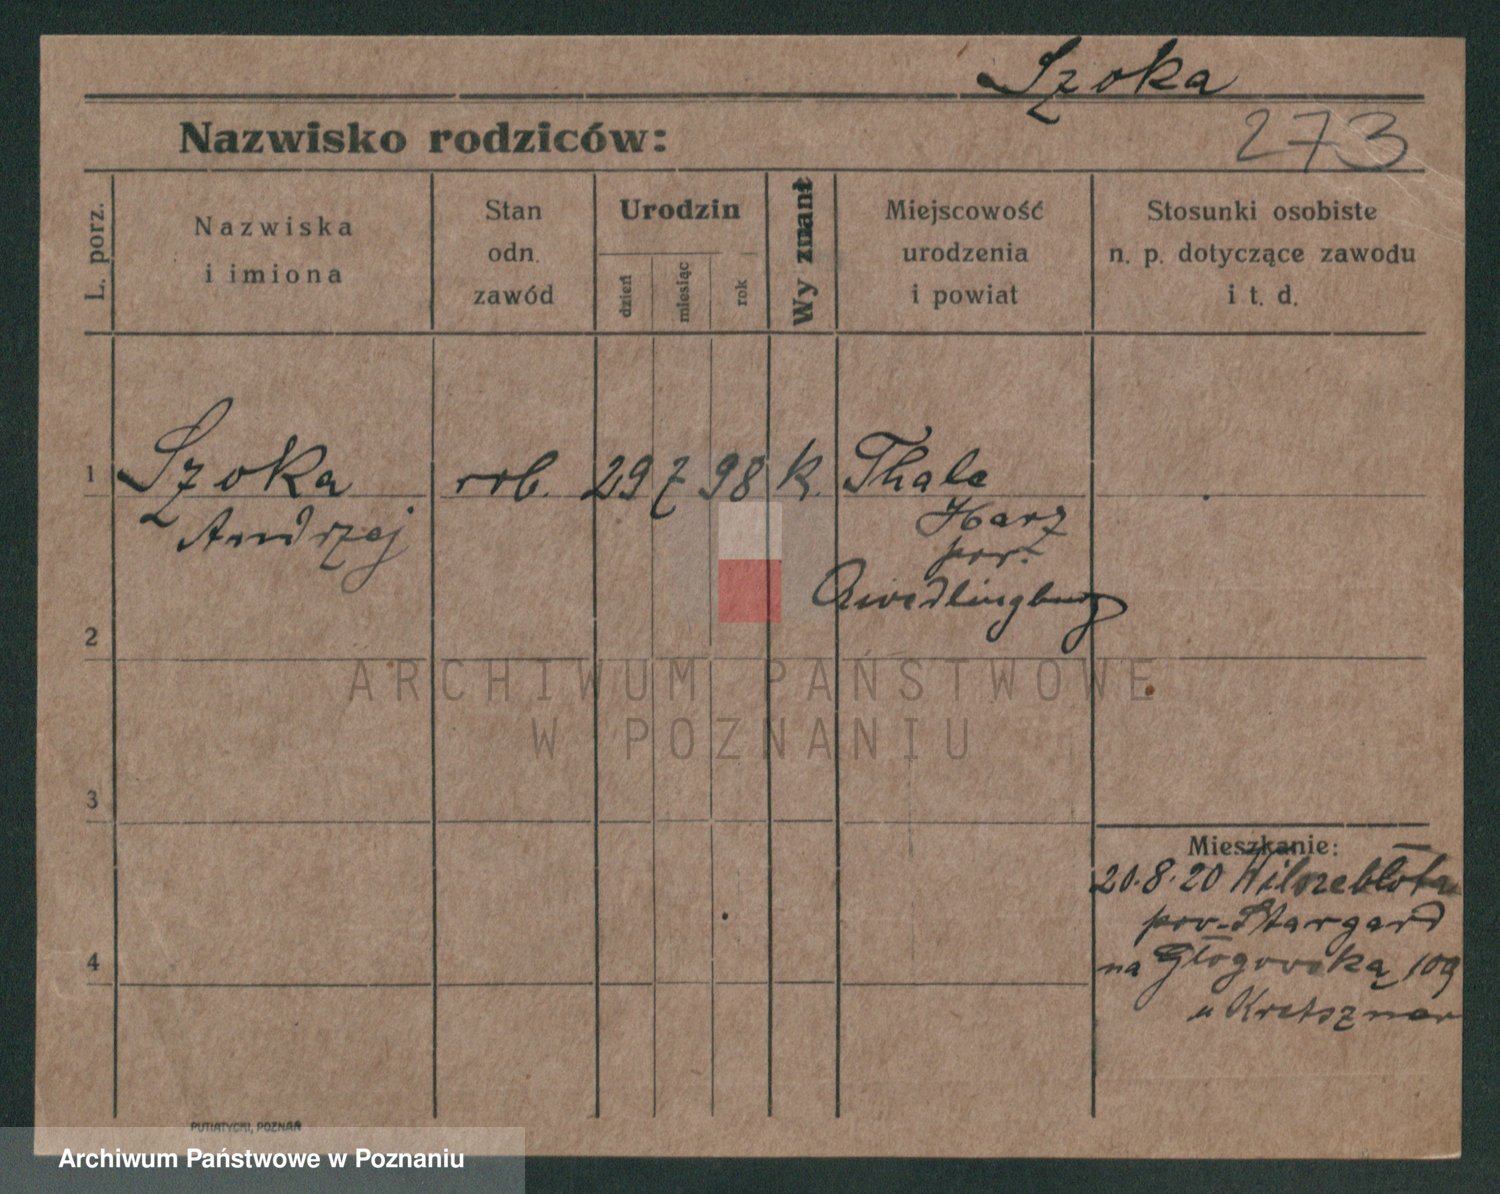 Szoka
Nazwisko rodziców:
273
L. porz.
Nazwiska
i imiona
Stan
odn.
zawód
Urodzin
dzień
miesiąc
rok
Wy znanł
Miejscowość
urodzenia
i powiat
Stosunki osobiste
n. p. dotyczące zawodu
i t. d.
1
Szoka rob. 29 7 98 k. Thale
Andrzej
Harz
pow.
Qwedlingburg
2
ARCHIWUM PAŃSTWOWE
W POZNANIU
3
Mieszkanie:
20.8.20
pow. Stargard
4
na Głogowską 109
u
PUTIATYCKI, POZNAŃ
Archiwum Państwowe w Poznaniu